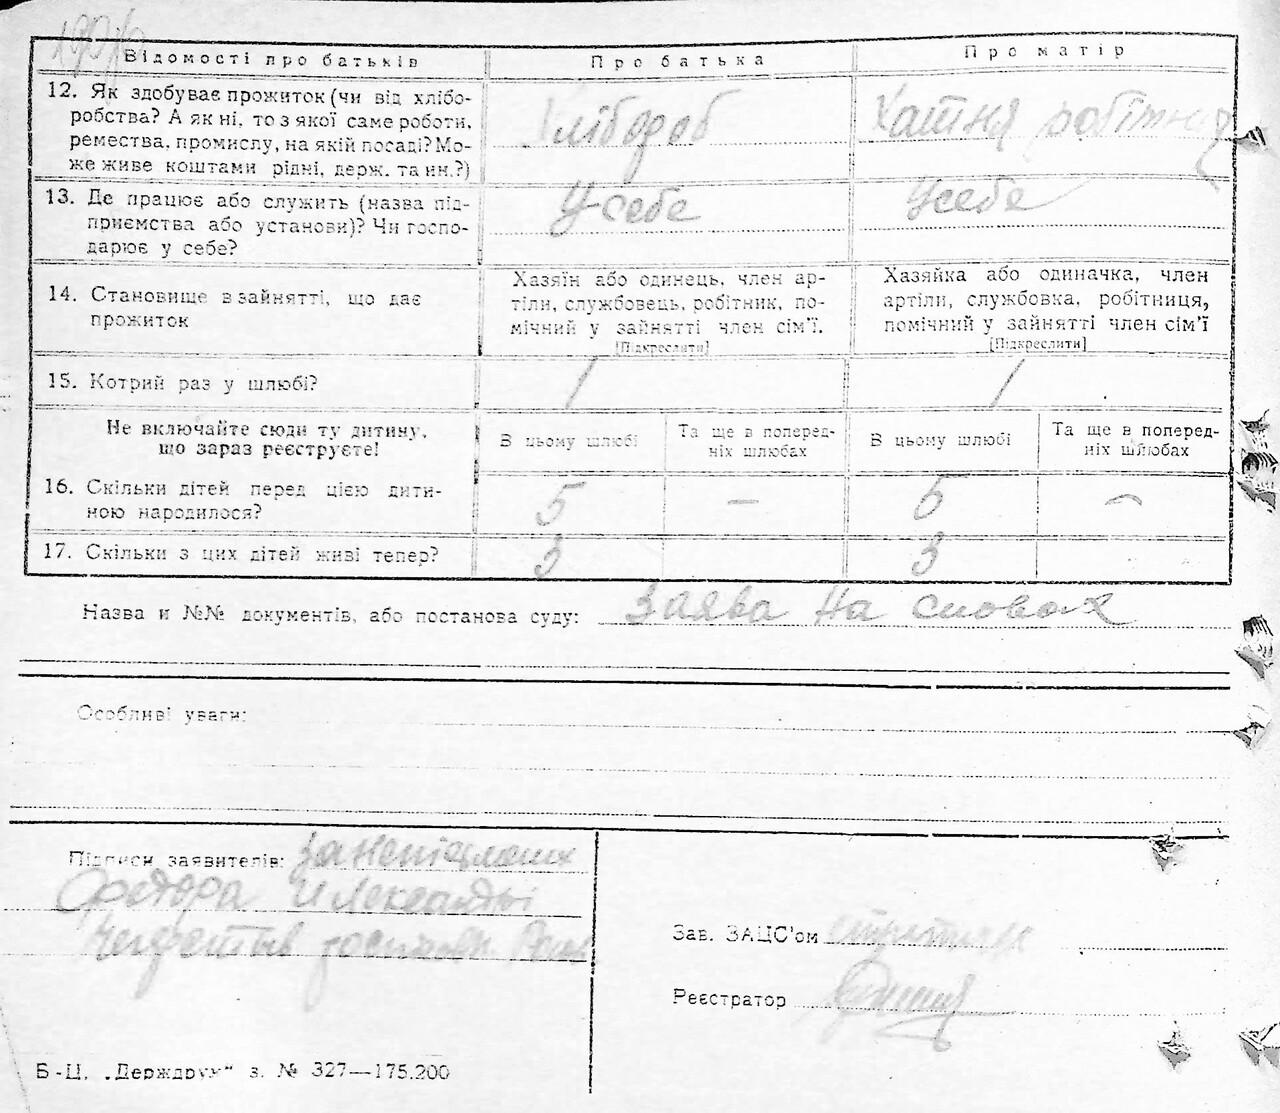 Відомості про батьків
Про батька
Про матір
12. Як здобуває прожиток (чи від хлібо-
робства? А як ні, то з якої саме роботи,
ремества, промислу, на якій посаді? Мо-
же живе коштами рідні, держ. та ин.?)
Хлібороб
Хатня робітниця
13. Де працює або служить (назва під-
приємства або установи)? Чи госпо-
дарює у себе?
У себе
У себе
14. Становище в зайнятті, що дає
прожиток
Хазяїн або одинець, член ар-
тіли, службовець, робітник, по-
мічний у зайнятті член сім'ї.
[Підкреслити]
Хазяйка або одиначка, член
артіли, службовка, робітниця,
помічний у зайнятті член сім'ї
[Підкреслити]
15. Котрий раз у шлюбі?
1
1
Не включайте сюди ту дитину,
що зараз реєструєте!
В цьому шлюбі
Та ще в поперед-
ніх шлюбах
В цьому шлюбі
Та ще в поперед-
ніх шлюбах
16. Скільки дітей перед цією дити-
ною народилося?
5
—
5
—
17. Скільки з цих дітей живі тепер?
3
3
Назва и №№ документів, або постанова суду: Заява на словах
Особливі уваги:
Підписи заявителів: За неписьмених
Федора и Лександри
Зав. ЗАЦС'ом
Реєстратор
Б-Ц. „Держдрук“ з. № 327—175.200